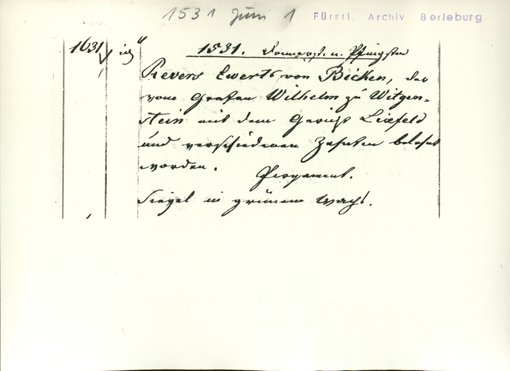 1531 Juni 1
Fürstl. Archiv Berleburg
1631
1531. Donnerst. n. Pfingsten
Revers Ewerts von Bicken, der
vom Grafen Wilhelm zu Witgen-
stein mit dem Gericht Lixfeld
und verschiedenen Zehnten belehnt
worden.
Pergament.
Siegel in grünem Wachs.